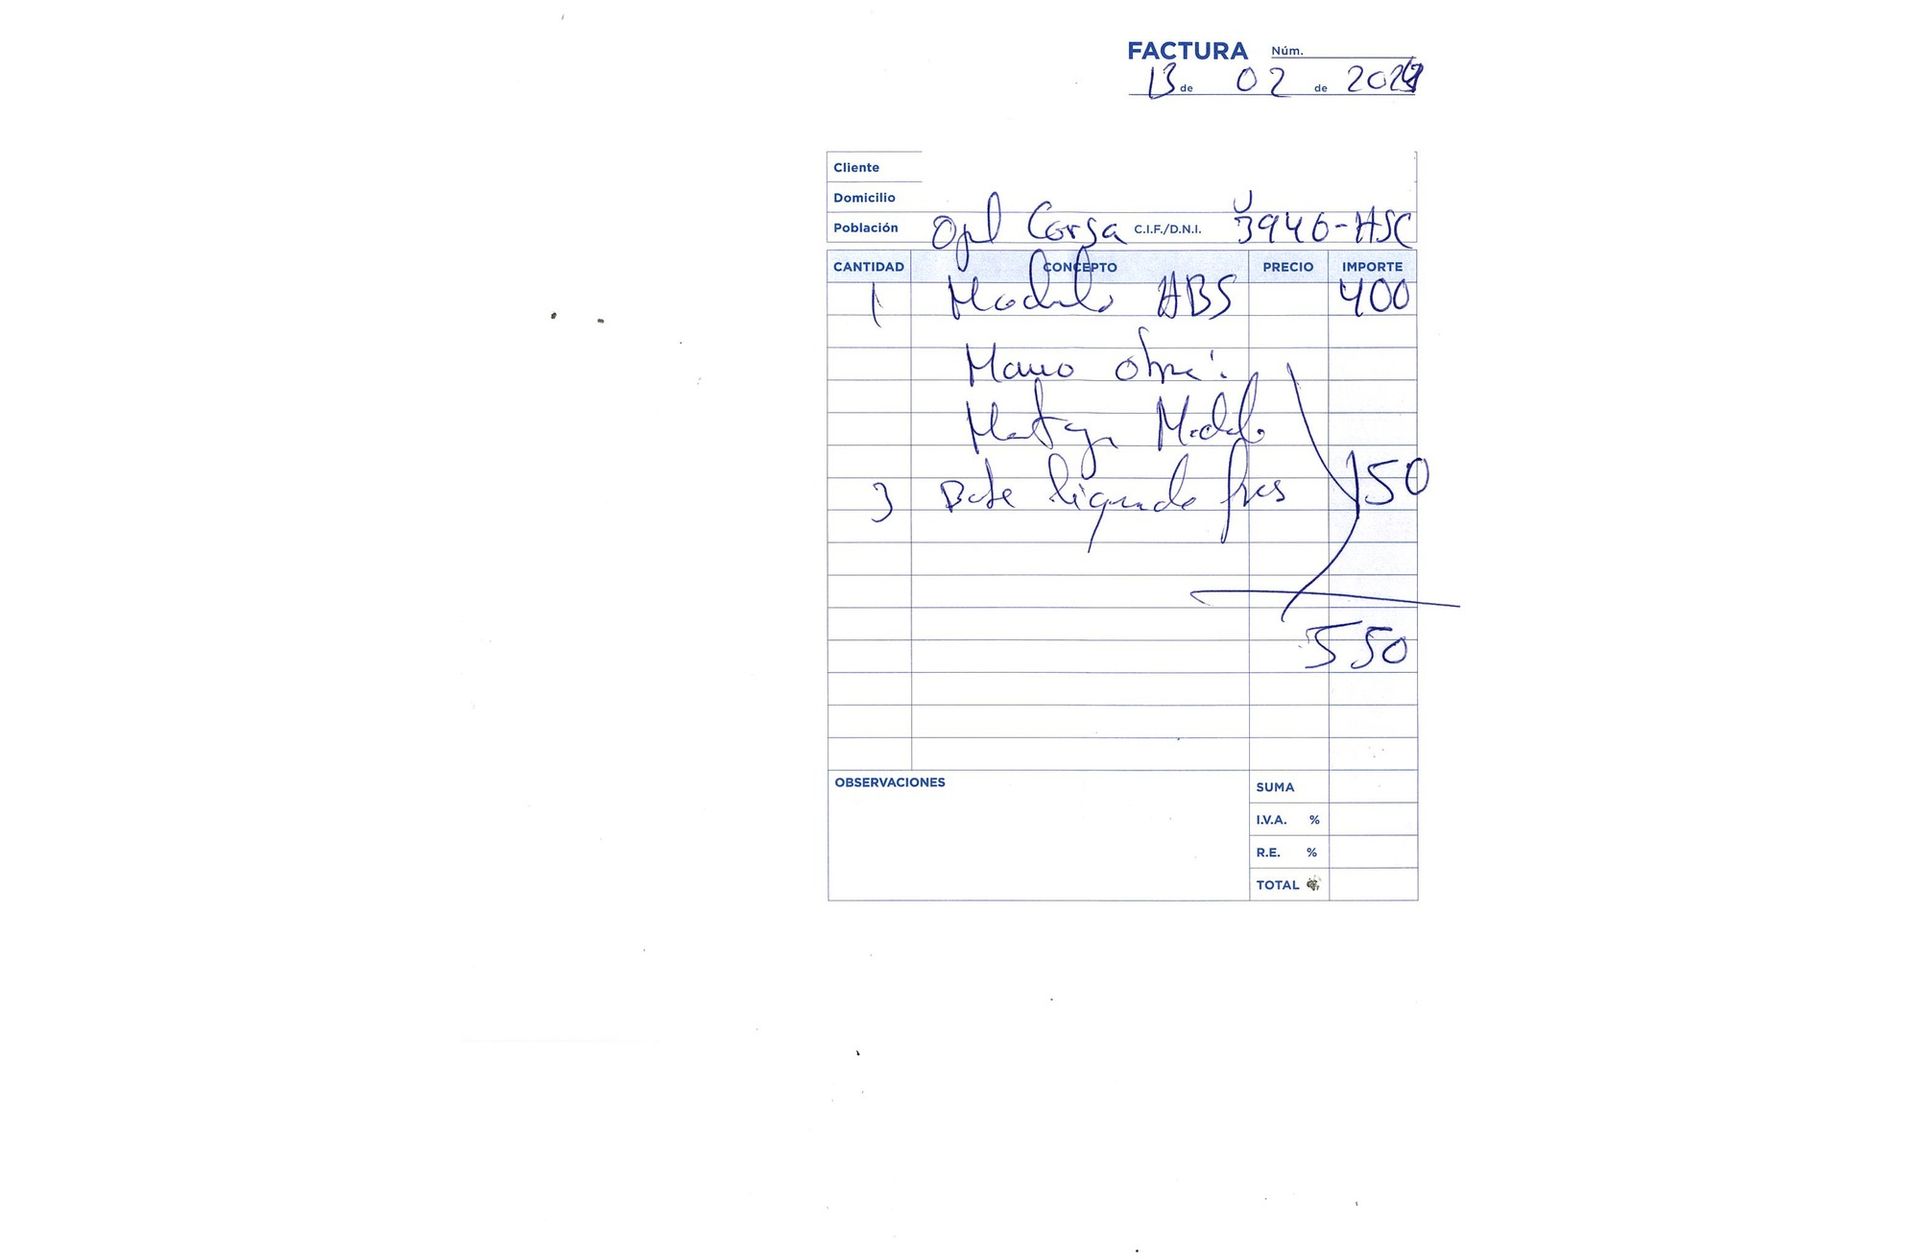 FACTURA Núm.
13 de 02 de
Cliente
Domicilio
Población Opel Corsa C.I.F./D.N.I. 3946-HSC
CANTIDAD CONCEPTO PRECIO IMPORTE
1 Modulo ABS 400
Mano obra:
Montaje Modulo
3 Bote liquido frenos 150
550
OBSERVACIONES
SUMA
I.V.A. %
R.E. %
TOTAL